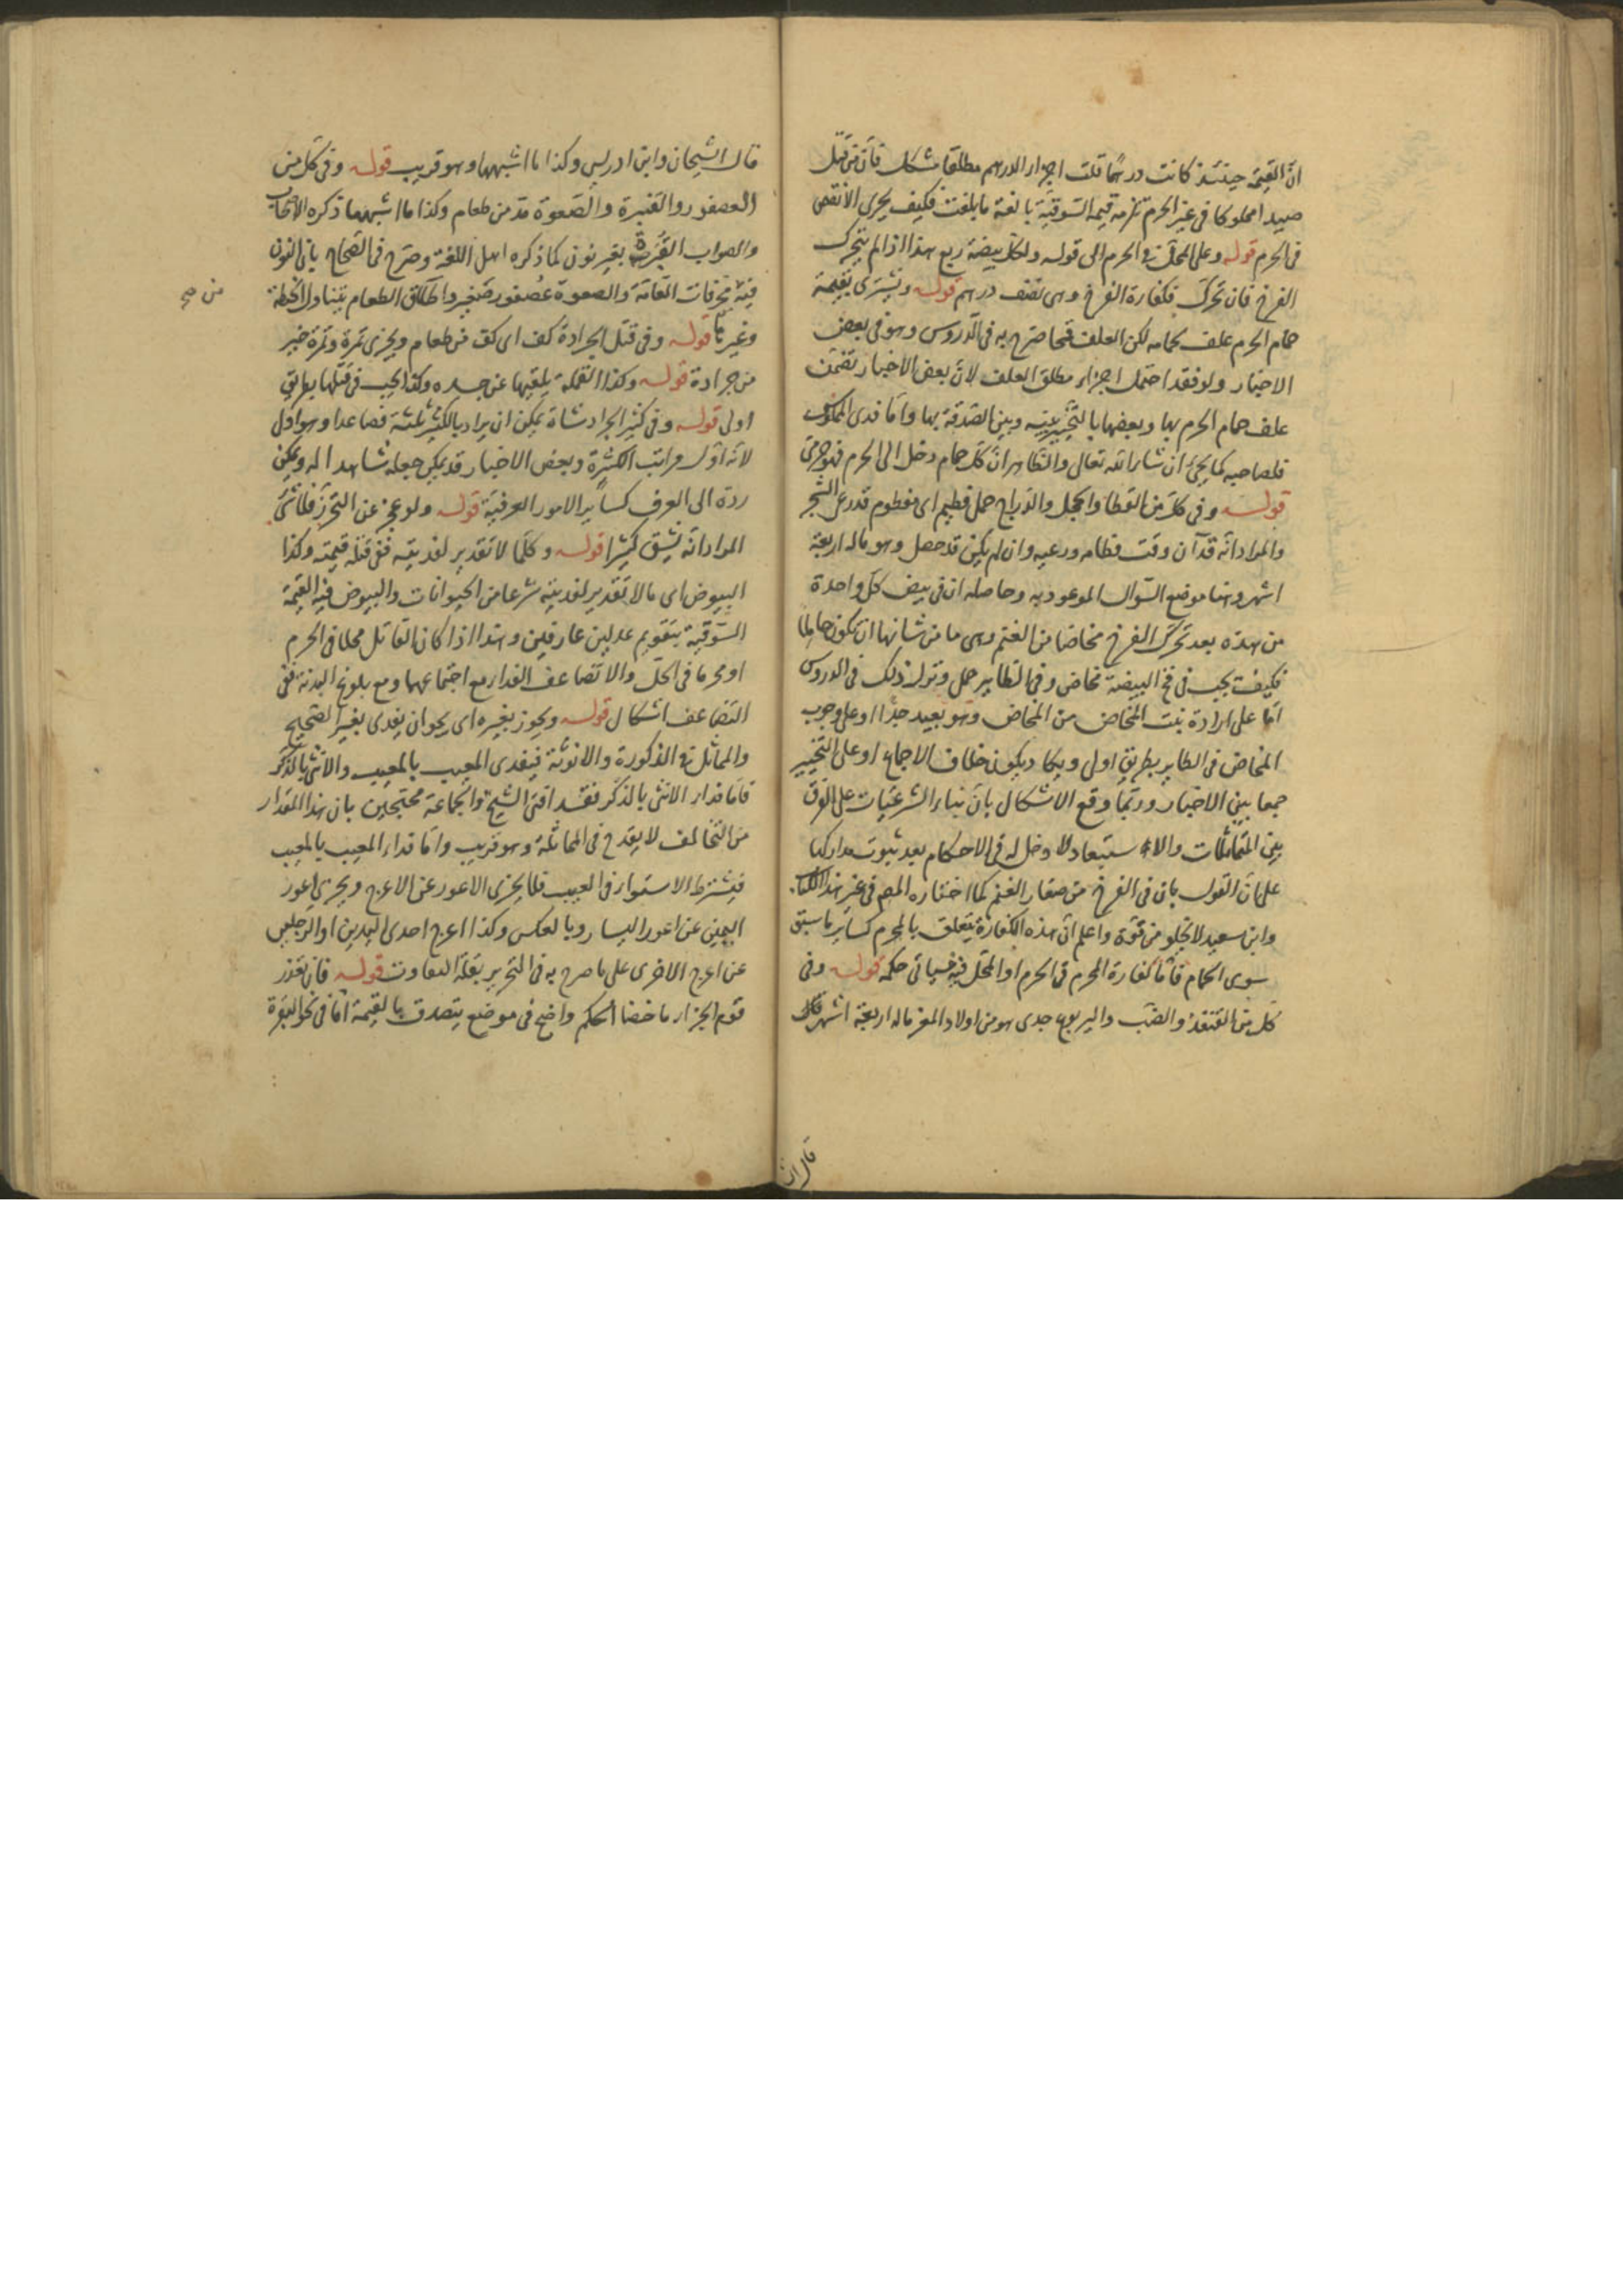 انّ القيمة حينئذ كانت درهمًا قلت اجزاء الدرهم مطلقا مشكل فان من قتل
صيدا مملوكا في غير الحرم تلزمه قيمة السوقية بالغة ما بلغت فكيف يجزى الانقص
في الحرم قوله وعلى المحل في الحرم الى قوله ولكل بيضة ربع هذا اذا لم يتحرك
الفرخ فان تحرك فكفارة الفرخ وهى نصف درهم قوله ويشترى بقيمة
حمام الحرم علف لحمامه لكن العلف قمحا صرح به في الدروس وهو في بعض
الاخبار ولو فقد احتمل اجزاء مطلق العلف لان بعض الاخبار تضمن
علف حمام الحرم بها وبعضها بالتخيير بينه وبين الصدقة بها واما فدى المملوك
فلصاحبه كما يجئ ان شاء الله تعالى والظاهر ان كل حمام دخل الى الحرم فهو حرمى
قوله وفى كل من القطا والحجل والدراج حمل فطيم اى مفطوم قد رعى الشجر
والمراد انه قد آن وقت فطامه ورعيه وان لم يكن قد حصل وهو ماله اربعة
اشهر وهنا موضع السؤال الموعود به وحاصله ان في بيض كل واحدة
من هذه بعد تحرك الفرخ مخاضا من الغنم وهى ما من شانها ان يكون حاملا
فكيف يجب في فرخ البيضة مخاض وفي الطاير حمل ونزل ذلك في الدروس
اما على ارادة بنت المخاض من المخاض وهو بعيد جدا او على وجوب
المخاض في الطاير بطريق اولى ويكاد يكون خلاف الاجماع او على التخيير
جمعا بين الاخبار وربما وقع الاشكال بان بناء الشرعيات على الفرق
بين المتماثلات والاستبعاد لا دخل له في الاحكام بعد ثبوت مداركها
على ان القول بان في الفرخ من صغار الغنم كما اختاره المصر في غير هذا الكتاب
وابن سعيد لا تخلو من قوة واعلم ان هذه الكفارة يتعلق بالمحرم كساير ما سبق
سوى الحمام فاما كفارة المحرم في الحرم او المحل فيه فسياتى حكمه قوله وفى
كل من القنفذ والضب واليربوع جدى هو من اولاد المعز ماله اربعة اشهر قاله
قال الشيخان
قال الشيخان وابن ادريس وكذا ما اشبهها وهو قريب قوله وفى كل من
العصفور والقنبرة والصعوة مد من طعام وكذا ما اشبهها ذكره الاصحاب
والصواب القبرة بغير نون كما ذكره اهل اللغة وصرح في الصحاح بان النون
فيه من تحريفات العامة والصعوة عصفور صغير واطلاق الطعام يتناول الحنطة
من صح
وغيرها قوله وفى قتل الجرادة كف اى كف من طعام ويجزى تمرة وتمرة خير
من جرادة قوله وكذا القملة يلقيها عن جسده وكذا يجب في قتلها بطريق
اولى قوله وفى كثير الجراد شاة يمكن ان يراد بالكثير ثلثة فصاعدا وهو اول
لانه اول مراتب الكثرة وبعض الاخبار قد يمكن جعله شاهدا له ويمكن
رده الى العرف كساير الامور العرفية قوله ولو عجز عن التحرز فلا شئ
المراد انه يشق كثيرا قوله وكلما لا تقدير لفديته ففي قتله قيمته وكذا
البيوض اى ما لا تقدير لفديته شرعا من الحيوانات والبيوض فيه القيمة
السوقية بتقويم عدلين عارفين وهذا اذا كان القاتل محلا في الحرم
او محرما في الحل والا تضاعف الفداء مع اجتماعهما ومع بلوغ البدنة ففى
التضاعف اشكال قوله ويجوز بغيره اى يجوز ان يفدى بغير الصحيح
والمماثل في الذكورة والانوثة فيفدى المعيب بالمعيب والانثى بالذكر
فاما فداء الانثى بالذكر فقد افتى الشيخ والجماعة محتجين بان هذا المقدار
من التخالف لا يقدح في المماثلة وهو قريب واما فداء المعيب بالمعيب
فيشترط الاستواء في العيب فلا يجزى الاعور عن الاعرج ويجزى اعور
اليمنى عن اعور اليسار وبالعكس وكذا اعرج احدى اليدين او الرجلين
عن اعرج الاخرى على ما صرح به في التحرير بقلة التفاوت قوله فان تعذر
قوم الجزاء ما خضا الحكم واضح في موضع يتصدق بالقيمة اما في نحو البقرة